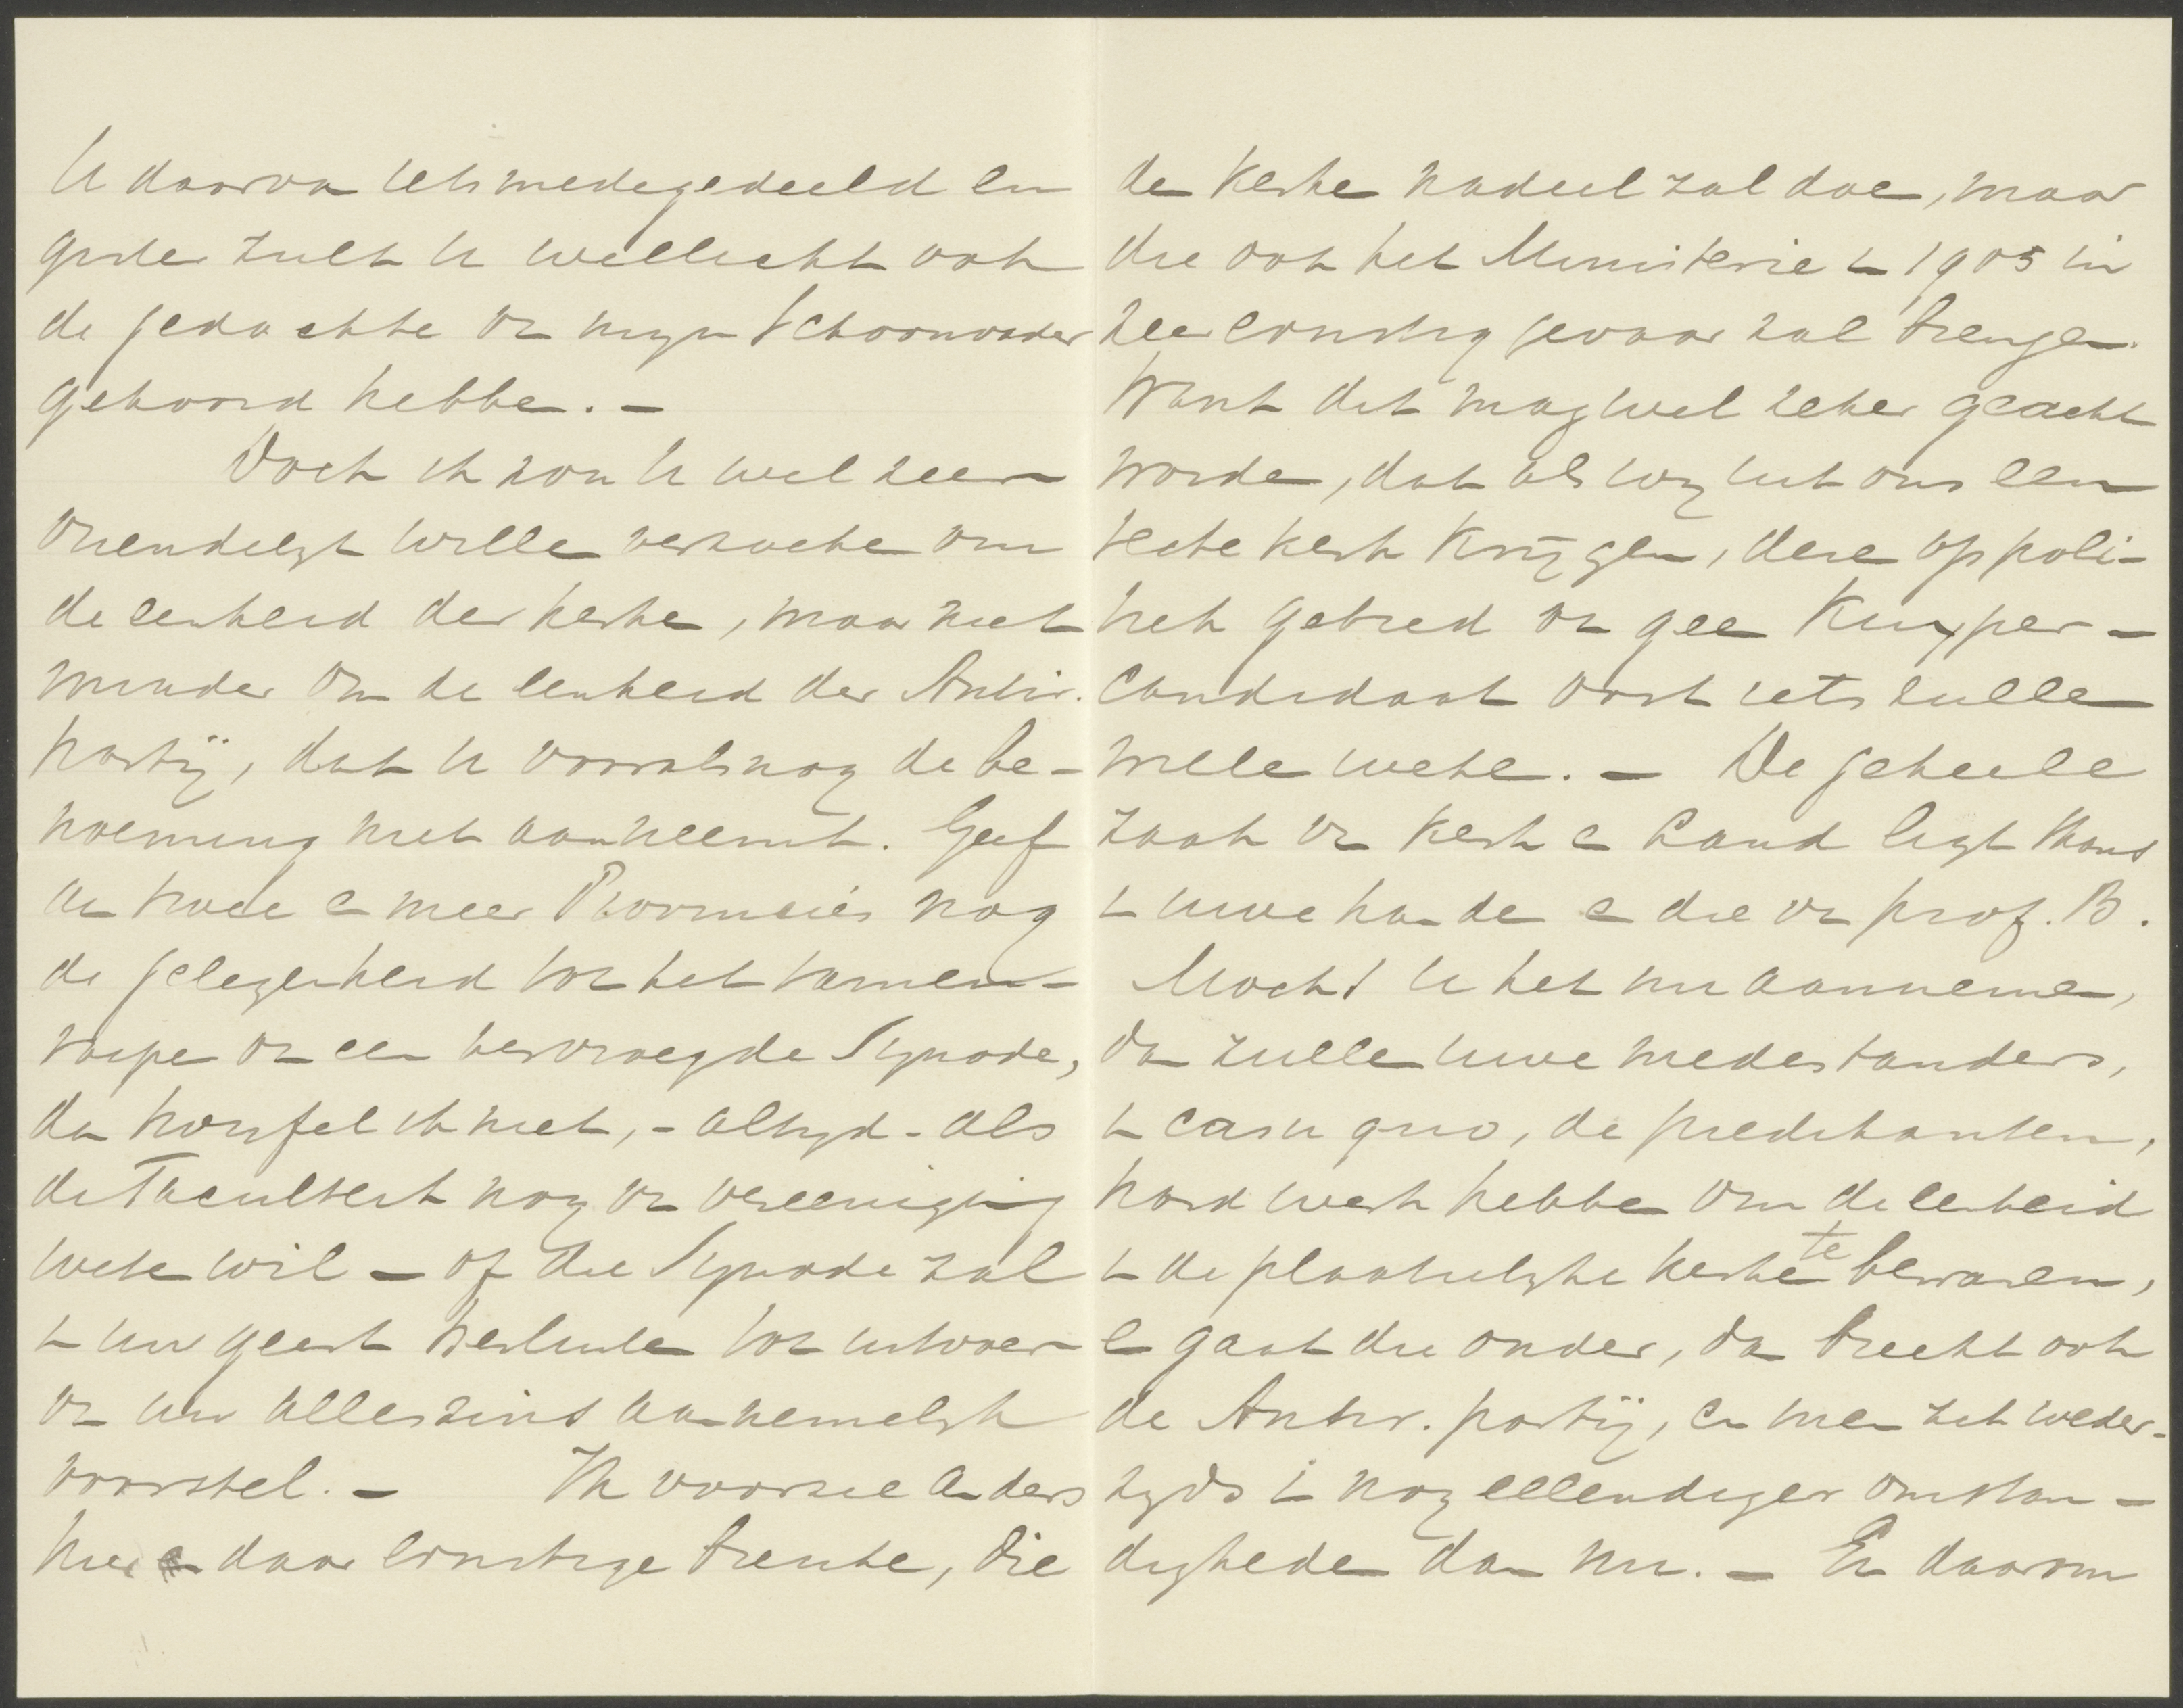 U daarvan iets medegedeeld en
zult U wellicht ook
de gedachte van mijn Schoonvader
gehoord hebben. –
Doch ik zou U wel zeer
vriendelijk willen verzoeken om
de eenheid der kerken, maar niet
minder om de eenheid der Antir.
partij, dat U vooralsnog de be-
noeming niet aanneemt. Geef
nu twee en meer Provincies nog
de gelegenheid tot het samen-
roepen van een vervroegde Synode,
dan twijfel ik niet, – altijd – als
de Faculteit nog van vereeniging
weten wil – of die Synode zal
in uw geest besluiten tot uitvoer
van uw alleszins aannemelijk
voorstel. – Ik voorzie anders
hier en daar ernstige breuken, die
de kerken nadeel zal doen, maar
die ook het Ministerie in 1905 in
zeer ernstig gevaar zal brengen.
Want dit mag wel zeker geacht
worden, dat als wij uit ons een
kerk krijgen, deze op poli-
tiek gebied van geen Kuyper-
candidaat ooit iets zullen
willen weten. – De geheele
zaak van Kerk en Land ligt thans
in uwe handen en die van prof. B.
Mocht U het nu aannemen,
dan zullen uwe medestanders,
in casu quo, de predikanten,
hard werk hebben om de eenheid
in de plaatselijke kerken te bewaren,
en gaat die onder, dan breekt ook
de Antir. partij, en men zit weder-
zijds in nog ellendiger omstan-
digheden dan nu. – En daarom